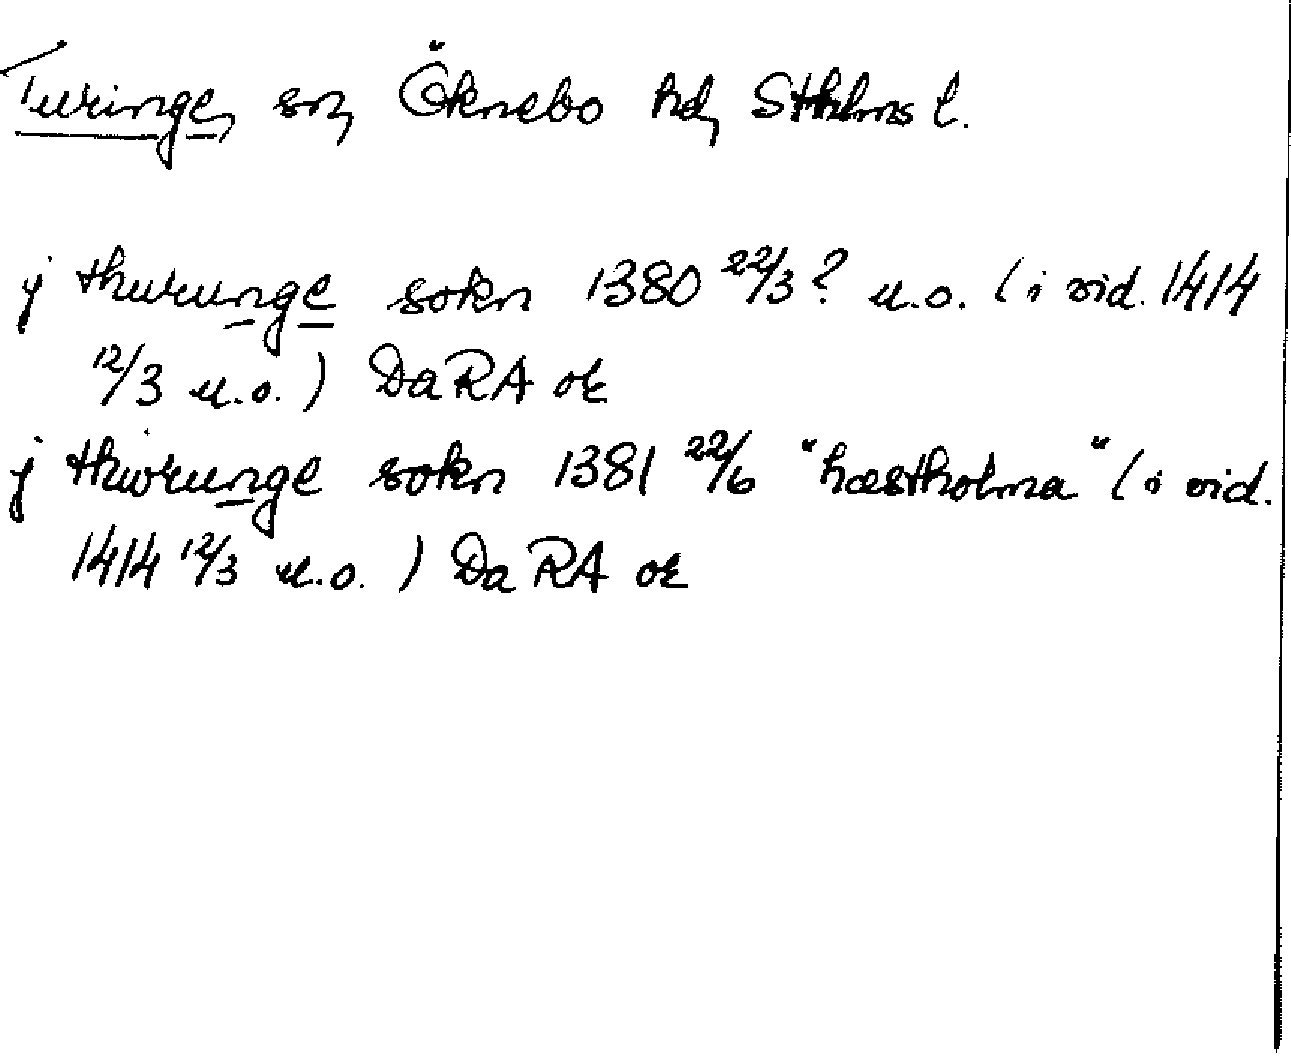 Turinge, sn, Öknebo hd, Sthlms l.
j thurunge sokn 1380 22/3? u.o. (i vid. 1414
12/3 u.o.) DaRA or
j thwrunge sokn 1381 22/6 "hæstholma" (i vid.
1414 12/3 u.o.) Da RA or